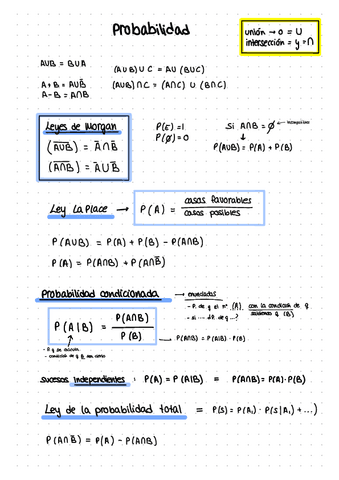 Probabilidad
unión → o = U
intersección = y = ∩
A∪B = B∪A
(A∪B)∪C = A∪(B∪C)
A+B = A∪B
(A∪B)∩C = (A∩C) ∪ (B∩C)
A-B = A∩B̅
Leyes de Morgan
(A̅∪̅B̅) = A̅∩B̅
(A̅∩̅B̅) = A̅∪B̅
P(E)=1
P(∅)=0
Si A∩B = ∅ → incompatibles
P(A∪B) = P(A) + P(B)
Ley La Place → P(A) = casos favorables
casos posibles
P(A∪B) = P(A) + P(B) - P(A∩B)
P(A) = P(A∩B) + P(A∩B̅)
Probabilidad condicionada → enunciados
P(A|B) = P(A∩B)
P(B)
con la condición de q
(A)
(B)
P(A∩B) = P(A|B)·P(B)
Sucesos independientes : P(A) = P(A|B) = P(A∩B) = P(A)·P(B)
Ley de la probabilidad total = P(S) = P(A₁)·P(S|A₁) + ...)
P(A∩B̅) = P(A) - P(A∩B)